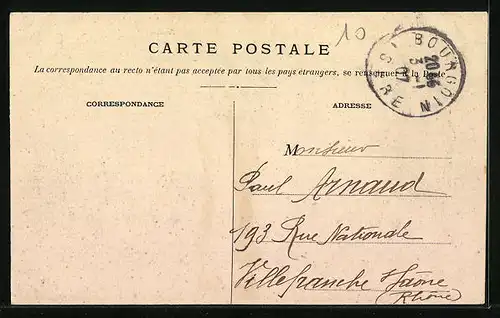 10
CARTE POSTALE
La correspondance au recto n'étant pas acceptée par tous les pays étrangers, se renseigner à la Poste
CORRESPONDANCE
ADRESSE
BOURGOIN
ISÈRE
Monsieur
Paul Arnaud
193 Rue Nationale
Villefranche s/Saône
(Rhône)